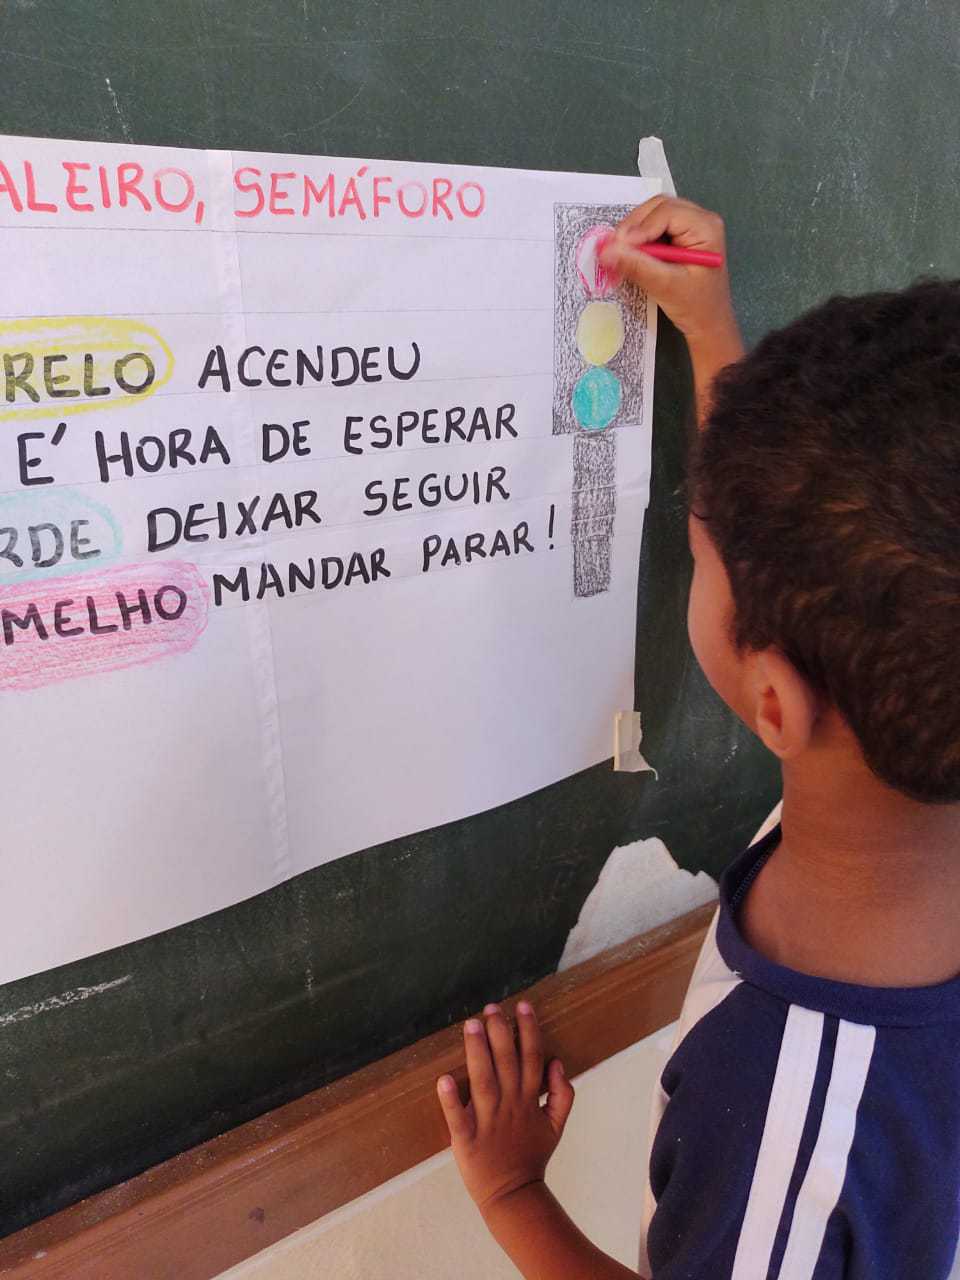 ALEIRO, SEMÁFORO
RELO ACENDEU
É HORA DE ESPERAR
RDE DEIXAR SEGUIR
MELHO MANDAR PARAR!